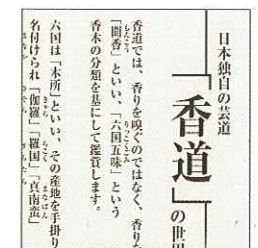 日本独自の芸道
「香道」の世界
香道では、香りを嗅ぐのではなく、香りを
「聞香」といい、「六国五味」という
香木の分類を基にして鑑賞します。
六国は「木所」といい、その産地を手掛り
名付けられ「伽羅」「羅国」「真南蛮」